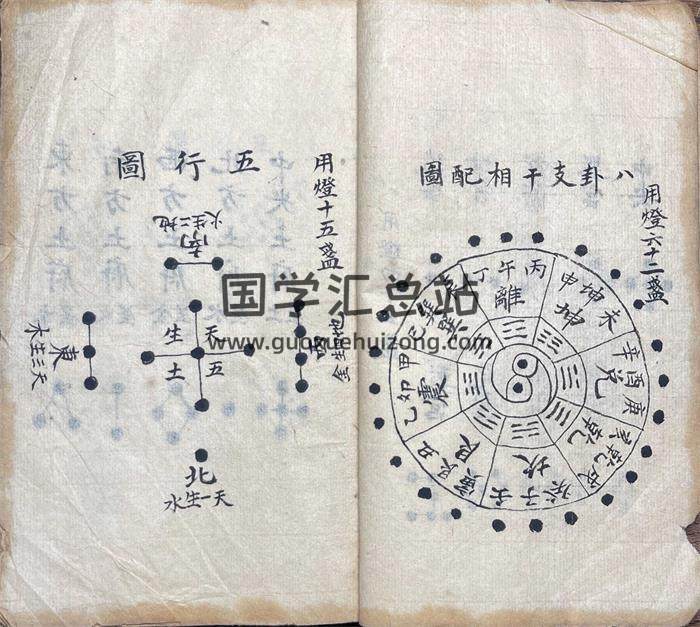 八卦支干相配圖
用燈六十二盞
丙午丁
離
未坤申
坤
庚酉辛
兌
戌乾亥
乾
壬子癸
坎
丑艮寅
艮
甲卯乙
震
巽
巳
用燈十五盞
五行圖
南
地二生火
天五
生土
東
天三生木
北
天一生水
国学汇总站
www.guoxuehuizong.com